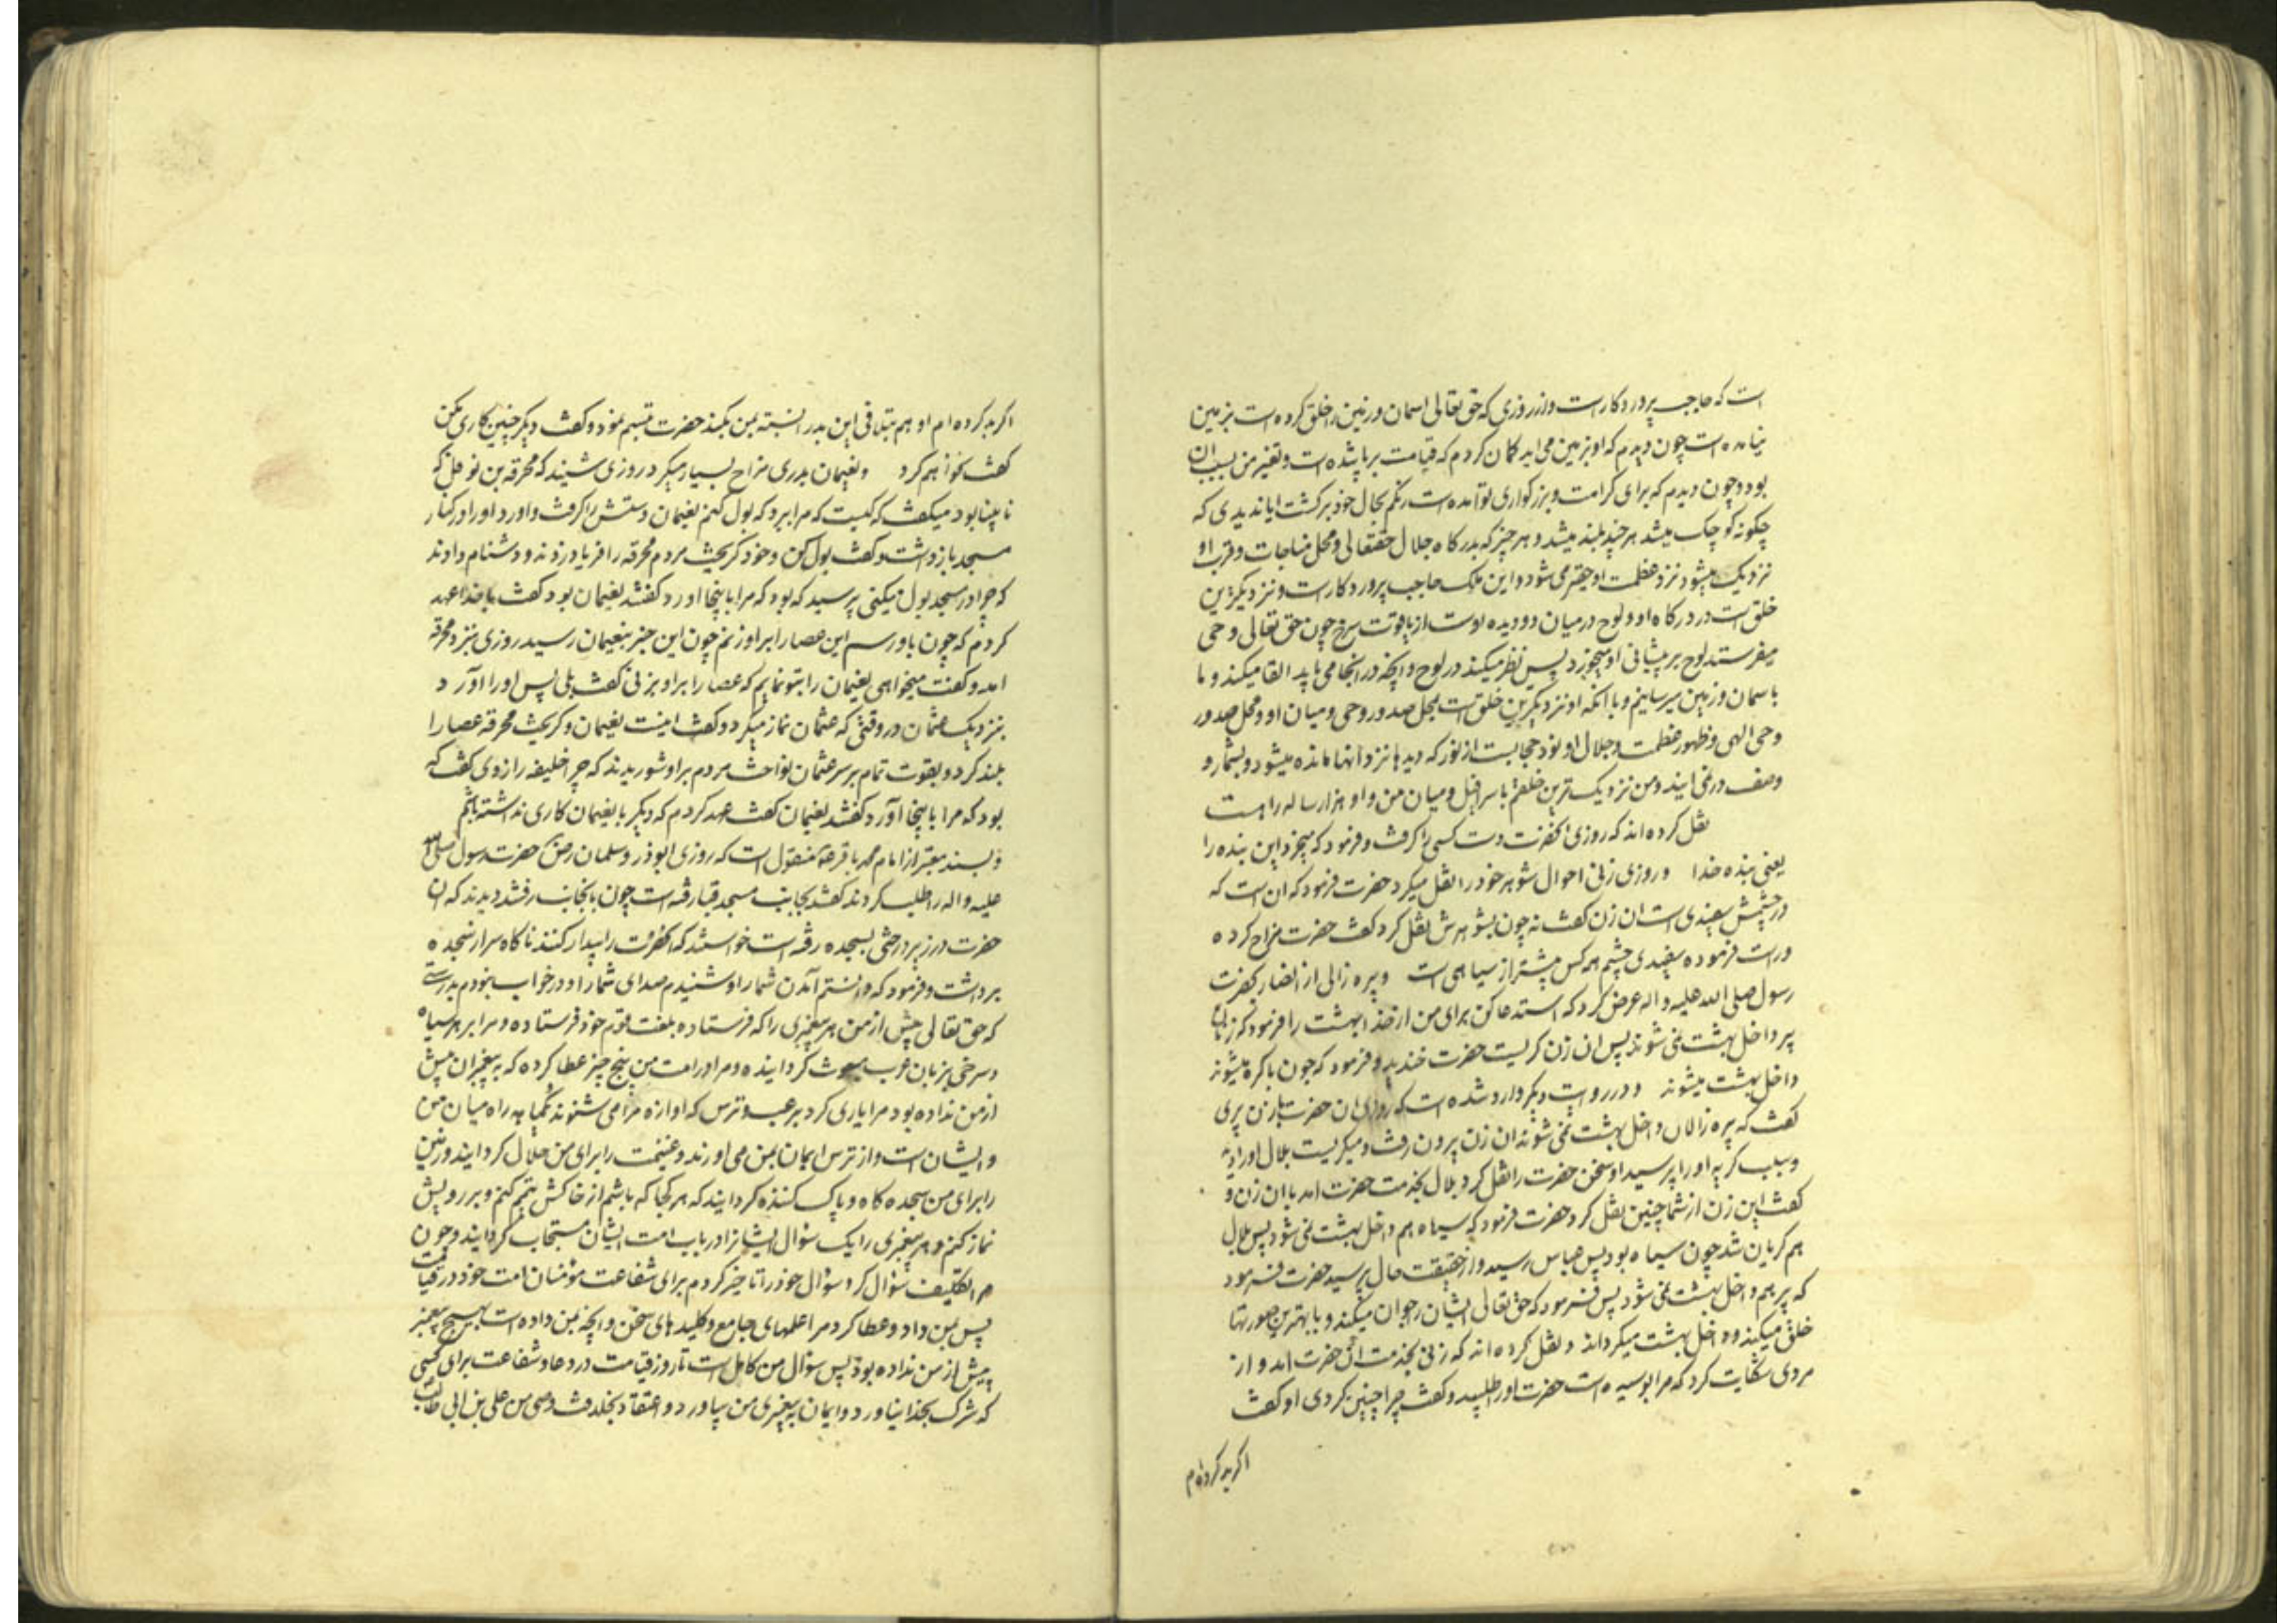 است که حاجب پروردکارست واز روزی که حق تعالی اسمان و زمین را خلق کرده است بزمین
نیامده است چون دیدم که او بزمین می اید کمان کردم که قیامت برپا شده است و تغییر من بسبب ان
بود و چون دیدم که برای کرامت و بزرکواری تو آمده است رنکم بحال خود برکشت ایا ندیدی که
چکونه کوچک میشد هر چند بلند میشد و هر چیز که بدرکاه جلال حقتعالی و محل مناجات و قرب او
نزدیک میشود نزد عظمت او حقیر می شود و این ملک حاجب پروردکارست و نزدیکترین
خلق است در درکاه او و لوح در میان دو دیده اوست از یاقوت سرخ چون حق تعالی وحی
میفرستد لوح بر پیشانی او میخورد پس نظر میکند در لوح و انچه در انجا می یابد القا میکند و ما
باسمان و زمین میرسانیم و با انکه او نزدیکترین خلق است بمحل صدور وحی و میان او و محل صدور
وحی الهی و ظهور عظمت و جلال او نود حجابست از نور که دیدها نزد انها مانده میشود و بشمار و
وصف در نمی ایند و من نزدیک ترین خلقم باسرافیل و میان من و او هزار ساله راهست
نقل کرده اند که روزی انحضرت دست کسی را کرفت و فرمود که میخرد این بنده را
یعنی بنده خدا و روزی زنی احوال شوهر خود را نقل میکرد حضرت فرمود که ان است که
در چشمش سفیدی است ان زن کفت نه چون بشوهرش نقل کرد کفت حضرت مزاح کرده
و راست فرموده سفیدی چشم هر کس بیشتر از سیاهی است و پیره زالی از انصار بحضرت
رسول صلی الله علیه و اله عرض کرد که استدعا کن برای من از خدا بهشت را فرمود که زنان
پیر داخل بهشت نمی شوند پس ان زن کریست حضرت خندید و فرمود که جون باکره میشوند
داخل بهشت میشوند و در روایت دیکر وارد شده است که روزی ان حضرت بازن پیری
کفت که پیره زالان داخل بهشت نمی شوند ان زن بیرون رفت و میکریست بلال او را دید
و سبب کریه او را پرسید او سخن حضرت را نقل کرد بلال بخدمت حضرت امد با ان زن و
کفت این زن از شما چنین نقل کرد حضرت فرمود که سیاه هم داخل بهشت نمی شود پس بلال
هم کریان شد چون سیاه بود پس عباس رسید و از حقیقت حال پرسید حضرت فرمود
که پیر هم داخل بهشت نمی شود پس فرمود که حق تعالی ایشان را جوان میکند و با بهترین صورتها
خلق میکند و داخل بهشت میکرداند و نقل کرده اند که زنی بخدمت ان حضرت امد و از
مردی شکایت کرد که مرا بوسیده است حضرت او را طلبید و کفت چرا چنین کردی او کفت
اکر بد کرده ام
اکر بد کرده ام او هم بتلافی این بد را نسبت بمن بکند حضرت تبسم نمود و کفت دیکر چنین کاری مکن
کفت نخواهم کرد و نعیمان بدری مزاح بسیار میکرد روزی شنید که محرقه بن نوفل که
نابینا بود میکفت که کیست که مرا ببرد که بول کنم نعیمان دستش را کرفت و اورد او را در کنار
مسجد بازداشت و کفت بول کن و خود کریخت مردم محرقه را فریاد زدند و دشنام دادند
که چرا در مسجد بول میکنی پرسید که بود که مرا باینجا اورد کفتند نعیمان بود کفت باخدا عهد
کردم که چون باو رسم این عصا را بر او زنم چون این خبر بنعیمان رسید روزی بنزد محرقه
امد و کفت میخواهی نعیمان را بتو نمایم که عصا را براو بزنی کفت بلی پس او را آورد
بنزدیک عثمان در وقتی که عثمان نماز میکرد و کفت اینست نعیمان و کریخت محرقه عصا را
بلند کرد و بقوت تمام بر سر عثمان نواخت مردم براو شوریدند که چرا خلیفه را زدی کفت که
بود که مرا باینجا آورد کفتند نعیمان کفت عهد کردم که دیکر با نعیمان کاری نداشته باشم
و بسند معتبر از امام محمد باقر ع منقول است که روزی ابوذر و سلمان رض حضرت رسول صلی الله
علیه و اله را طلب کردند کفتند بجانب مسجد قبا رفته است چون بانجانب رفتند دیدند که ان
حضرت در زیر درختی بسجده رفته است خواستند که انحضرت را بیدار کنند ناکاه سر از سجده
برداشت و فرمود که دانستم آمدن شما را و شنیدم صدای شما را و در خواب نبودم بدرستی
که حق تعالی پیش از من هر پیغمبری را که فرستاده بلغت قوم خود فرستاده و مرا بر هر سیاه
و سرخی بزبان عرب مبعوث کردانیده و مرا در امت من پنج چیز عطا کرده که به پیغمبران پیش
از من نداده بود مرا یاری کرد برعب و ترس که اوازه مرا می شنوند یکماهه راه میان من
و ایشان است و از ترس ایمان بمن می اورند و غنیمت را برای من حلال کردانید و زمین
را برای من سجده کاه و پاک کننده کردانید که هر کجا که باشم از خاکش تیمم کنم و بر رویش
نماز کنم و هر پیغمبری را یک سؤال ایشانرا در باب امت ایشان مستجاب کردانید و چون
مرا تکلیف سؤال کرد سؤال خود را تاخیر کردم برای شفاعت مؤمنان امت خود در قیامت
پس بمن داد و عطا کرد مرا علمهای جامع و کلیدهای سخن و انچه بمن داده است بهیچ پیغمبر
پیش از من نداده بود پس سؤال من کامل است تا روز قیامت در دعا و شفاعت برای کسی
که شرک بخدا نیاورد و ایمان به پیغمبری من بیاورد و اعتقاد بخلافت وصی من علی بن ابی طالب